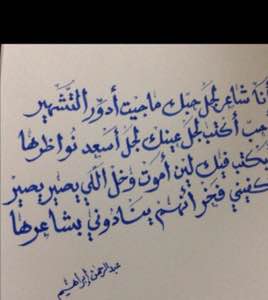 أنَا شاعر لجل حبك ما جيت أدوّر التّشهير
أحب أكتب لجل عينك لجل أسعد نواظرها
بكتب فيك لين أموت وخل اللي يصير يصير
يكفيني فخر أنهم ينادوني بشاعرها
عبدالرحمن إبراهيم